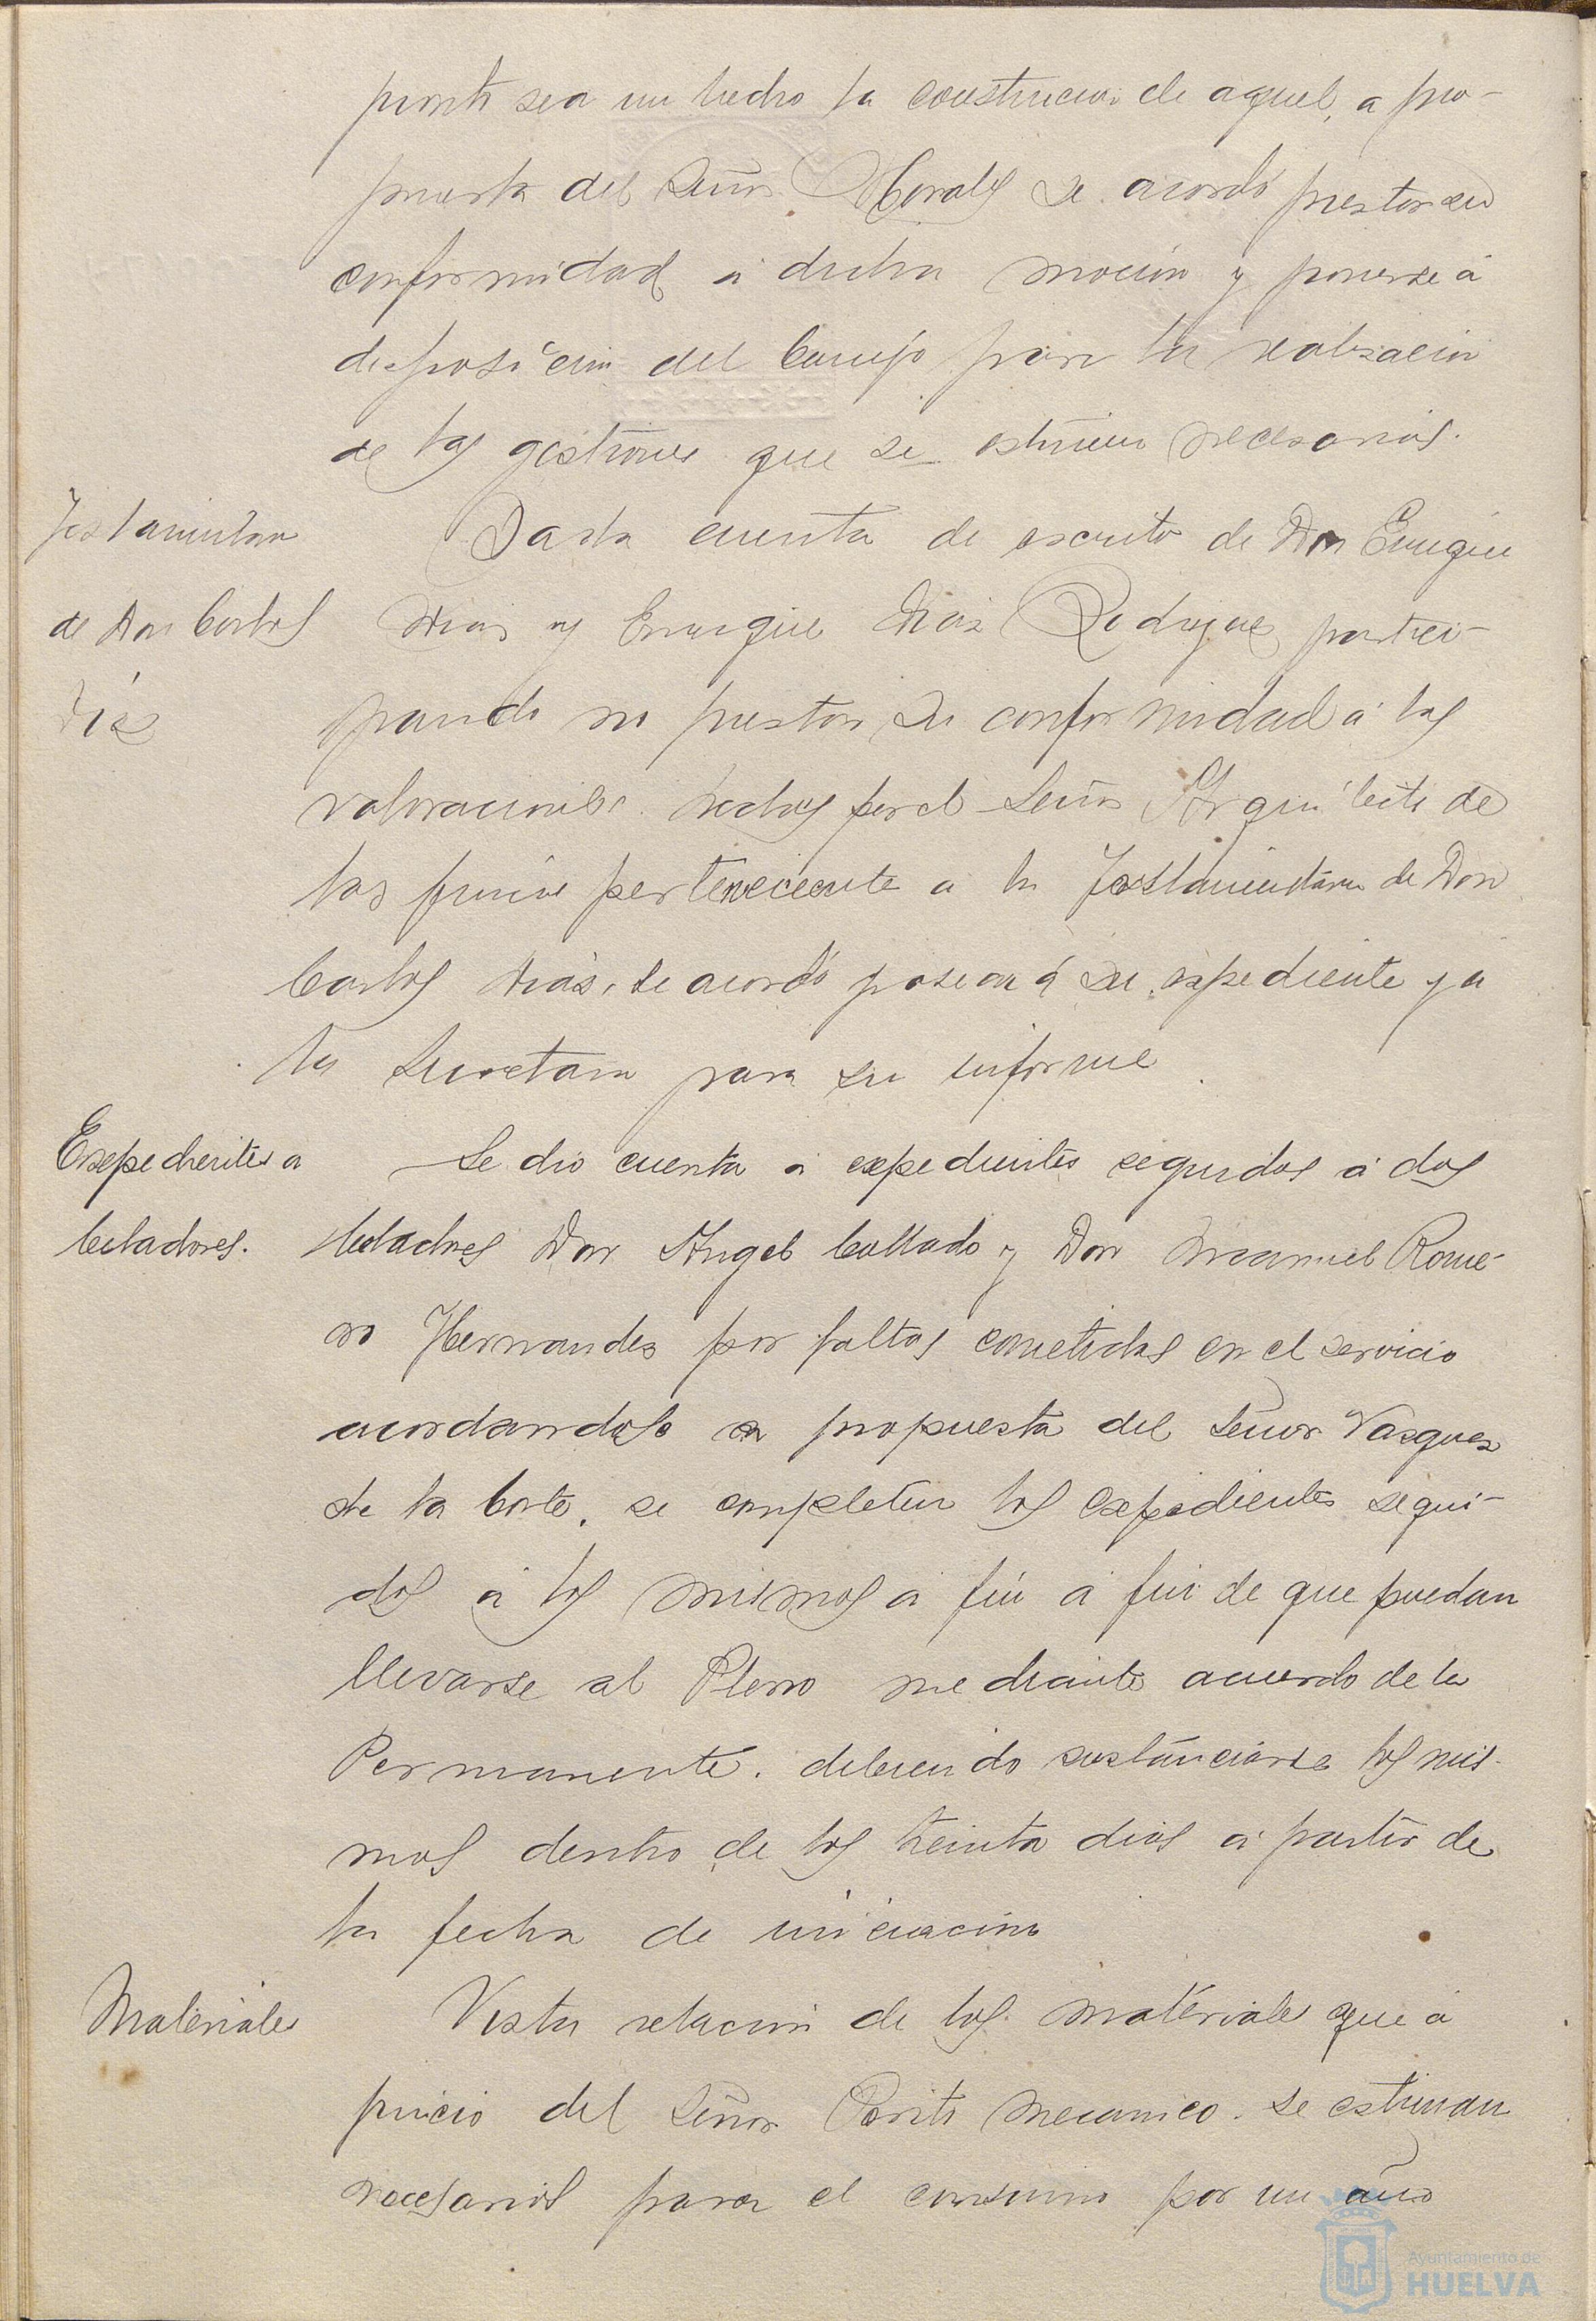 pronto sea un hecho la construccion de aquel, a pro-
puesta del Señor Morales se acordó prestar su
conformidad á dicha moción y ponerse á
disposición del Consejo para la realización
de las gestiones que se estimen necesarias.
Testamentaria
Dada cuenta de escrito de Don Enrique
de Don Carlos
Diaz y Enrique Diaz Rodriguez partici-
Diaz
pando no prestar su conformidad á las
valoraciones hechas por el Señor Arquitecto de
las fincas perteneciente a la Testamentaria de Don
Carlos Diaz, se acordó pasaran á su expediente y á
la Secretaria para su informe.
Expedientes a
Se dio cuenta á expedientes seguidos á dos
Celadores.
Celadores Don Angel Collado y Don Manuel Rome-
ro Hernandez por faltas cometidas en el servicio
acordandose a propuesta del Señor Vazquez
de la Corte, se completen los expedientes segui-
dos á los mismos á fin á fin de que puedan
llevarse al Pleno mediante acuerdo de la
Permanente, debiendo sustanciarse los mis-
mos dentro de los treinta dias á partir de
la fecha de iniciación
Materiales
Vista relación de los materiales que á
juicio del Señor Perito mecanico se estiman
necesarios para el consumo por un año
Ayuntamiento de
HUELVA